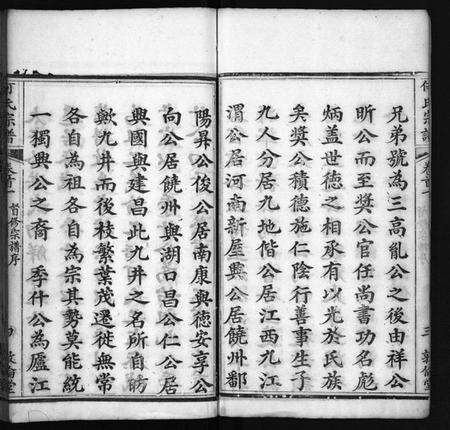 何氏宗譜
卷首
三
敦倫堂
兄弟號為三高亂公之後由祥公
昕公而至獎公官任尚書功名彪
炳蓋世德之相承有以光於氏族
矣獎公積德施仁陰行善事生子
九人分居九地偕公居江西九江
渭公居河南新屋興公居饒州鄱
陽昇公俊公居南康與德安享公
向公居饒州與湖口昌公仁公居
興國與建昌此九井之名所自昉
歟九井而後枝繁葉茂遷徙無常
各自為祖各自為宗其勢莫能統
一獨興公之裔季什公為廬江
何氏宗譜
卷首
督修宗譜序
敦倫堂